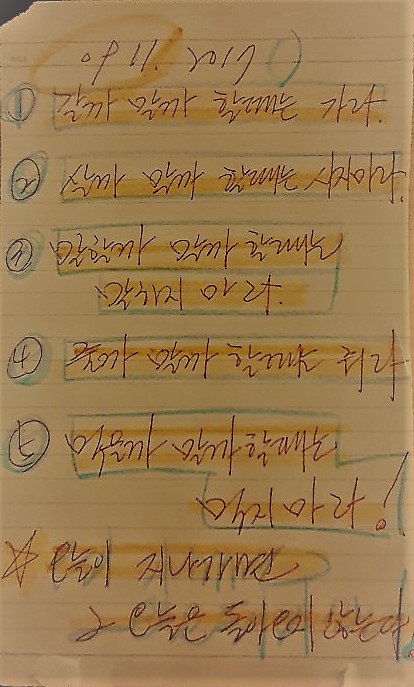 ① 갈까 말까 할때는 가라.
② 살까 말까 할때는 사지마라.
③ 말할까 말까 할때는
마라.
④ 줄까 말까 할때는 줘라
⑤ 먹을까 말까 할때는
먹지 마라!
☆ 오늘이 지나가면
그 오늘은 돌아오지 않는다.